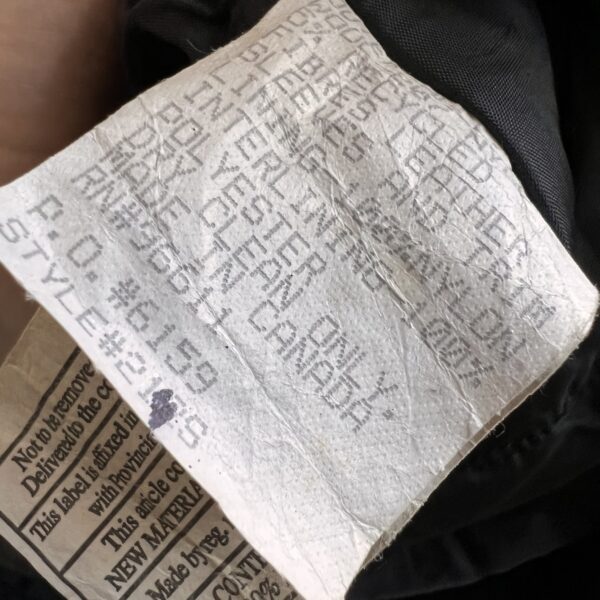 RECYCLED
FIBRES LEATHER
SLEEVES AND TRIM
LINING 100% NYLON
INTERLINING 100%
POLYESTER
DRY CLEAN ONLY.
MADE IN CANADA
RN#96611
P.O. #6159
STYLE#2 S
Not to be remove
Delivered to the co
This label is affixed in
with Provinc
This article co
NEW MATERIA
Made by reg.
CONT
0%